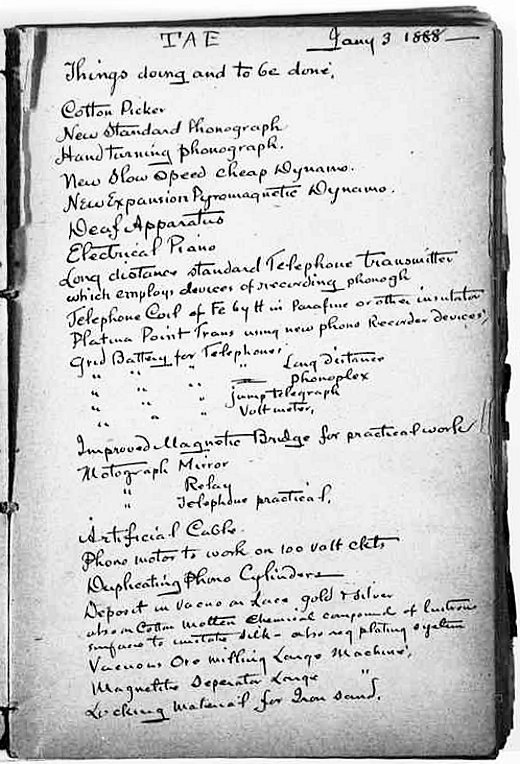 TAE Jany 3 1888
Things doing and to be done,
Cotton Picker
New Standard Phonograph
Hand turning phonograph.
New Slow Speed Cheap Dynamo.
New Expansion Pyromagnetic Dynamo.
Deaf Apparatus
Electrical Piano
Long distance standard Telephone transmitter
which employs devices of recording phonogh
Telephone Coil of Fe by tt in Parafine or other insulator
Platina Point Trans using new phono Recorder devices,
Grid Battery for Telephones,
" " " Long distance
" " " Phonoplex
" " " jump telegraph
" " " Voltmeter,
Improved Magnetic Bridge for practical work
Motograph Mirror
" Relay
" Telephone practical,
Artificial Cable
Phono motor to work on 100 volt ckts
Duplicating Phono Cylinders
Deposit in vacuo on Lace, gold & silver
also on Cotton molten Chemical compound of lustrous
surface to imitate silk — also reg plating system
Vacuous Ore milling Large Machine,
Magnetic Seperator Large "
Locking Material for Iron sand,